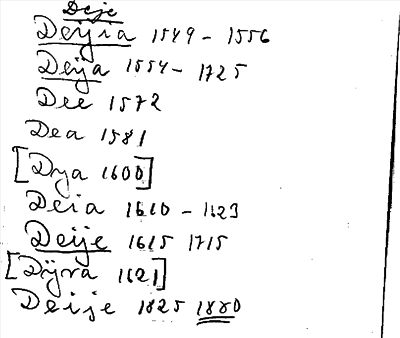 Deije
Deijia 1549 - 1556
Deija 1554 - 1725
Dee 1572
Dea 1581
[Dya 1600]
Deia 1610 - 1623
Deije 1615 1715
[Dÿra 1621]
Deije 1825 1880